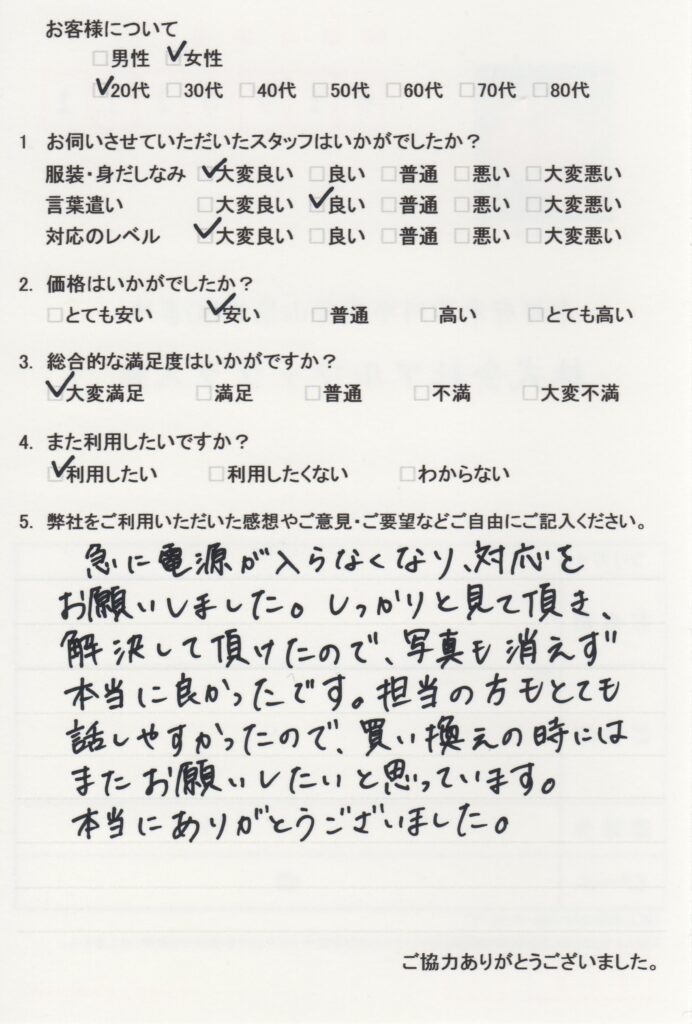 お客様について
□男性 ☑女性
☑20代 □30代 □40代 □50代 □60代 □70代 □80代
1 お伺いさせていただいたスタッフはいかがでしたか？
服装・身だしなみ ☑大変良い □良い □普通 □悪い □大変悪い
言葉遣い □大変良い ☑良い □普通 □悪い □大変悪い
対応のレベル ☑大変良い □良い □普通 □悪い □大変悪い
2. 価格はいかがでしたか？
□とても安い ☑安い □普通 □高い □とても高い
3. 総合的な満足度はいかがですか？
☑大変満足 □満足 □普通 □不満 □大変不満
4. また利用したいですか？
☑利用したい □利用したくない □わからない
5. 弊社をご利用いただいた感想やご意見・ご要望などご自由にご記入ください。
急に電源が入らなくなり、対応を
お願いしました。しっかりと見て頂き、
解決して頂けたので、写真も消えず
本当に良かったです。担当の方もとても
話しやすかったので、買い換えの時には
またお願いしたいと思っています。
本当にありがとうございました。
ご協力ありがとうございました。